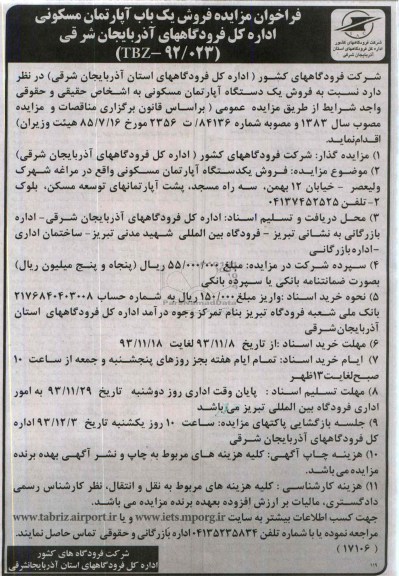 فراخوان مزایده فروش یک باب آپارتمان مسکونی
اداره کل فرودگاههای آذربایجان شرقی
(TBZ–۹۲/۰۲۳)
شرکت فرودگاههای کشور
اداره کل فرودگاههای استان
آذربایجان شرقی
شرکت فرودگاههای کشور ( اداره کل فرودگاههای استان آذربایجان شرقی) در نظر
دارد نسبت به فروش یک دستگاه آپارتمان مسکونی به اشخاص حقیقی و حقوقی
واجد شرایط از طریق مزایده عمومی ( براساس قانون برگزاری مناقصات و مزایده
مصوب سال ۱۳۸۳ و مصوبه شماره ۸۴۱۳۶/ ت ۲۳۵۶ مورخ ۸۵/۷/۱۶ هیئت وزیران)
اقدام‌نماید.
۱) مزایده گذار: شرکت فرودگاههای کشور ( اداره کل فرودگاههای آذربایجان شرقی)
۲) موضوع مزایده: فروش یکدستگاه آپارتمان مسکونی واقع در مراغه شهرک
ولیعصر - خیابان ۱۲ بهمن، سه راه مسجد، پشت آپارتمانهای توسعه مسکن، بلوک
۲-تلفن ۰۴۱۳۷۴۵۲۵۲۵
۳) محل دریافت و تسلیم اسناد: اداره کل فرودگاههای آذربایجان شرقی- اداره
بازرگانی به نشانی تبریز - فرودگاه بین المللی شهید مدنی تبریز- ساختمان اداری
-اداره‌بازرگانی
۴) سپرده شرکت در مزایده: مبلغ ۵۵/۰۰۰/۰۰۰ ریال (پنجاه و پنج میلیون ریال)
بصورت ضمانتنامه بانکی یا سپرده بانکی
۵) نحوه خرید اسناد :واریز مبلغ ۱۵۰/۰۰۰ریال به شماره حساب ۲۱۷۶۸۴۰۴۰۳۰۰۸
بانک ملی شعبه فرودگاه تبریز بنام تمرکز وجوه درآمد اداره کل فرودگاههای استان
آذربایجان‌شرقی
۶) مهلت خرید اسناد :از تاریخ ۹۳/۱۱/۸ لغایت ۹۳/۱۱/۱۸
۷) ایام خرید اسناد: تمام ایام هفته بجز روزهای پنجشنبه و جمعه از ساعت ۱۰
صبح‌لغایت۱۳ظهر
۸) مهلت تسلیم اسناد : پایان وقت اداری روز دوشنبه تاریخ ۹۳/۱۱/۲۹ به امور
اداری فرودگاه بین المللی تبریز می‌باشد
۹) جلسه بازگشایی پاکتهای مزایده: ساعت ۱۰ روز یکشنبه تاریخ ۹۳/۱۲/۳ اداره
کل فرودگاههای آذربایجان شرقی
۱۰) هزینه چاپ آگهی: کلیه هزینه های مربوط به چاپ و نشر آگهی بهده برنده
مزایده می‌باشد.
۱۱) هزینه کارشناسی : کلیه هزینه های مربوط به نقل و انتقال، نظر کارشناس رسمی
دادگستری، مالیات بر ارزش افزوده بعهده برنده مزایده می باشد.
جهت کسب اطلاعات بیشتر به سایت www.iets.mporg.ir و یا www.tabriz.airport.ir
مراجعه نموده یا با شماره تلفن ۰۴۱۳۵۲۳۵۸۳۴ اداره بازرگانی و حقوقی تماس حاصل نمایند.
(۱۷۱۰۶ )
شرکت فرودگاه های کشور
اداره کل فرودگاههای استان آذربایجانشرقی